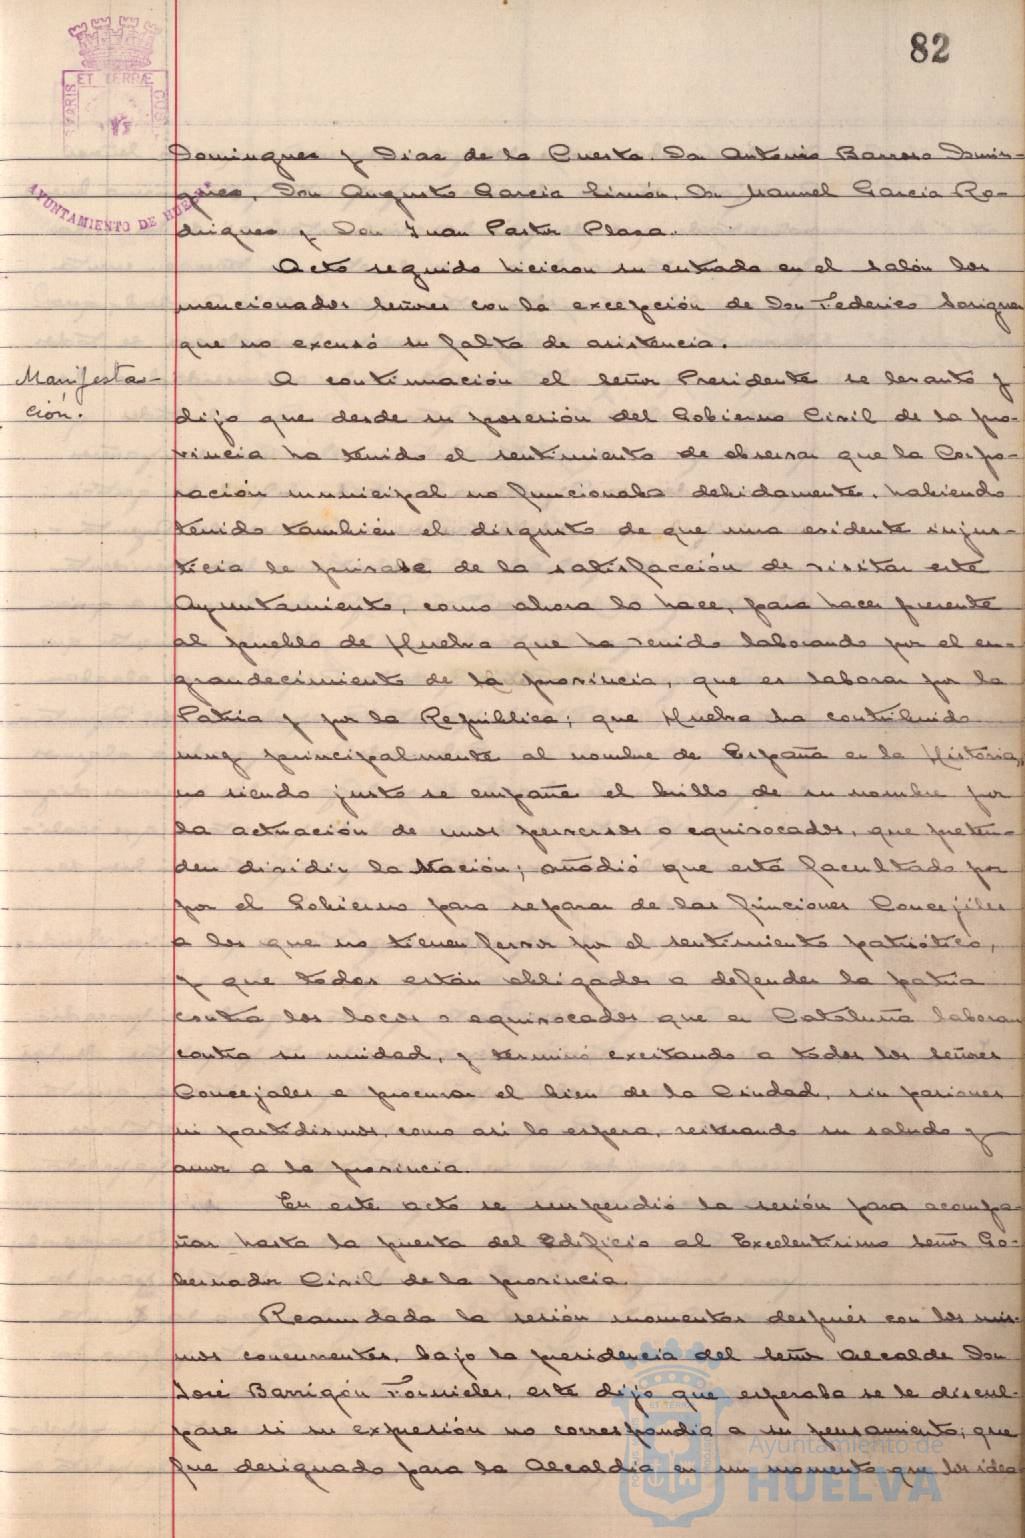 82
ET TERRÆ
AYUNTAMIENTO DE HUELVA
Dominguez y Diaz de la Cuesta, Don Antonio Barroso Domin-
guez, Don Augusto Garcia Simón, Don Manuel Garcia Ro-
driguez y Don Juan Pastor Plaza.
Acto seguido hicieron su entrada en el salón los
mencionados señores con la excepción de Don Federico
que no excusó su falta de asistencia.
Manifesta-
ción.
A continuación el señor Presidente se levantó y
dijo que desde su posesión del Gobierno Civil de la pro-
vincia ha tenido el sentimiento de observar que la Corpo-
ración municipal no funcionaba debidamente, habiendo
tenido también el disgusto de que una evidente injus-
ticia le privase de la satisfacción de visitar este
Ayuntamiento, como ahora lo hace, para hacer presente
al pueblo de Huelva que ha venido laborando por el en-
grandecimiento de la provincia, que es laborar por la
Patria y por la República; que Huelva ha contribuido
muy principalmente al nombre de España en la Historia,
no siendo justo se empañe el brillo de su nombre por
la actuación de unos perversos o equivocados, que preten-
den dividir la Nación; añadió que está facultado por
por el Gobierno para separar de las funciones Concejiles
a los que no tienen fervor por el sentimiento patriótico,
y que todos están obligados a defender la patria
contra los locos o equivocados que en Cataluña laboran
contra su unidad, y terminó excitando a todos los señores
Concejales a procurar el bien de la Ciudad, sin pasiones
ni partidismos, como asi lo espera, reiterando su saludo y
amor a la provincia.
En este acto se suspendió la sesión para acompa-
ñar hasta la puerta del Edificio al Excelentisimo señor Go-
bernador Civil de la provincia.
Reanudada la sesión momentos después con los mis-
mos concurrentes, bajo la presidencia del señor Alcalde Don
José Barrigón Fornieles, este dijo que esperaba se le discul-
pase si su expresión no correspondia a su pensamiento; que
fue designado para la Alcaldia en un momento que los idea
Ayuntamiento de
HUELVA